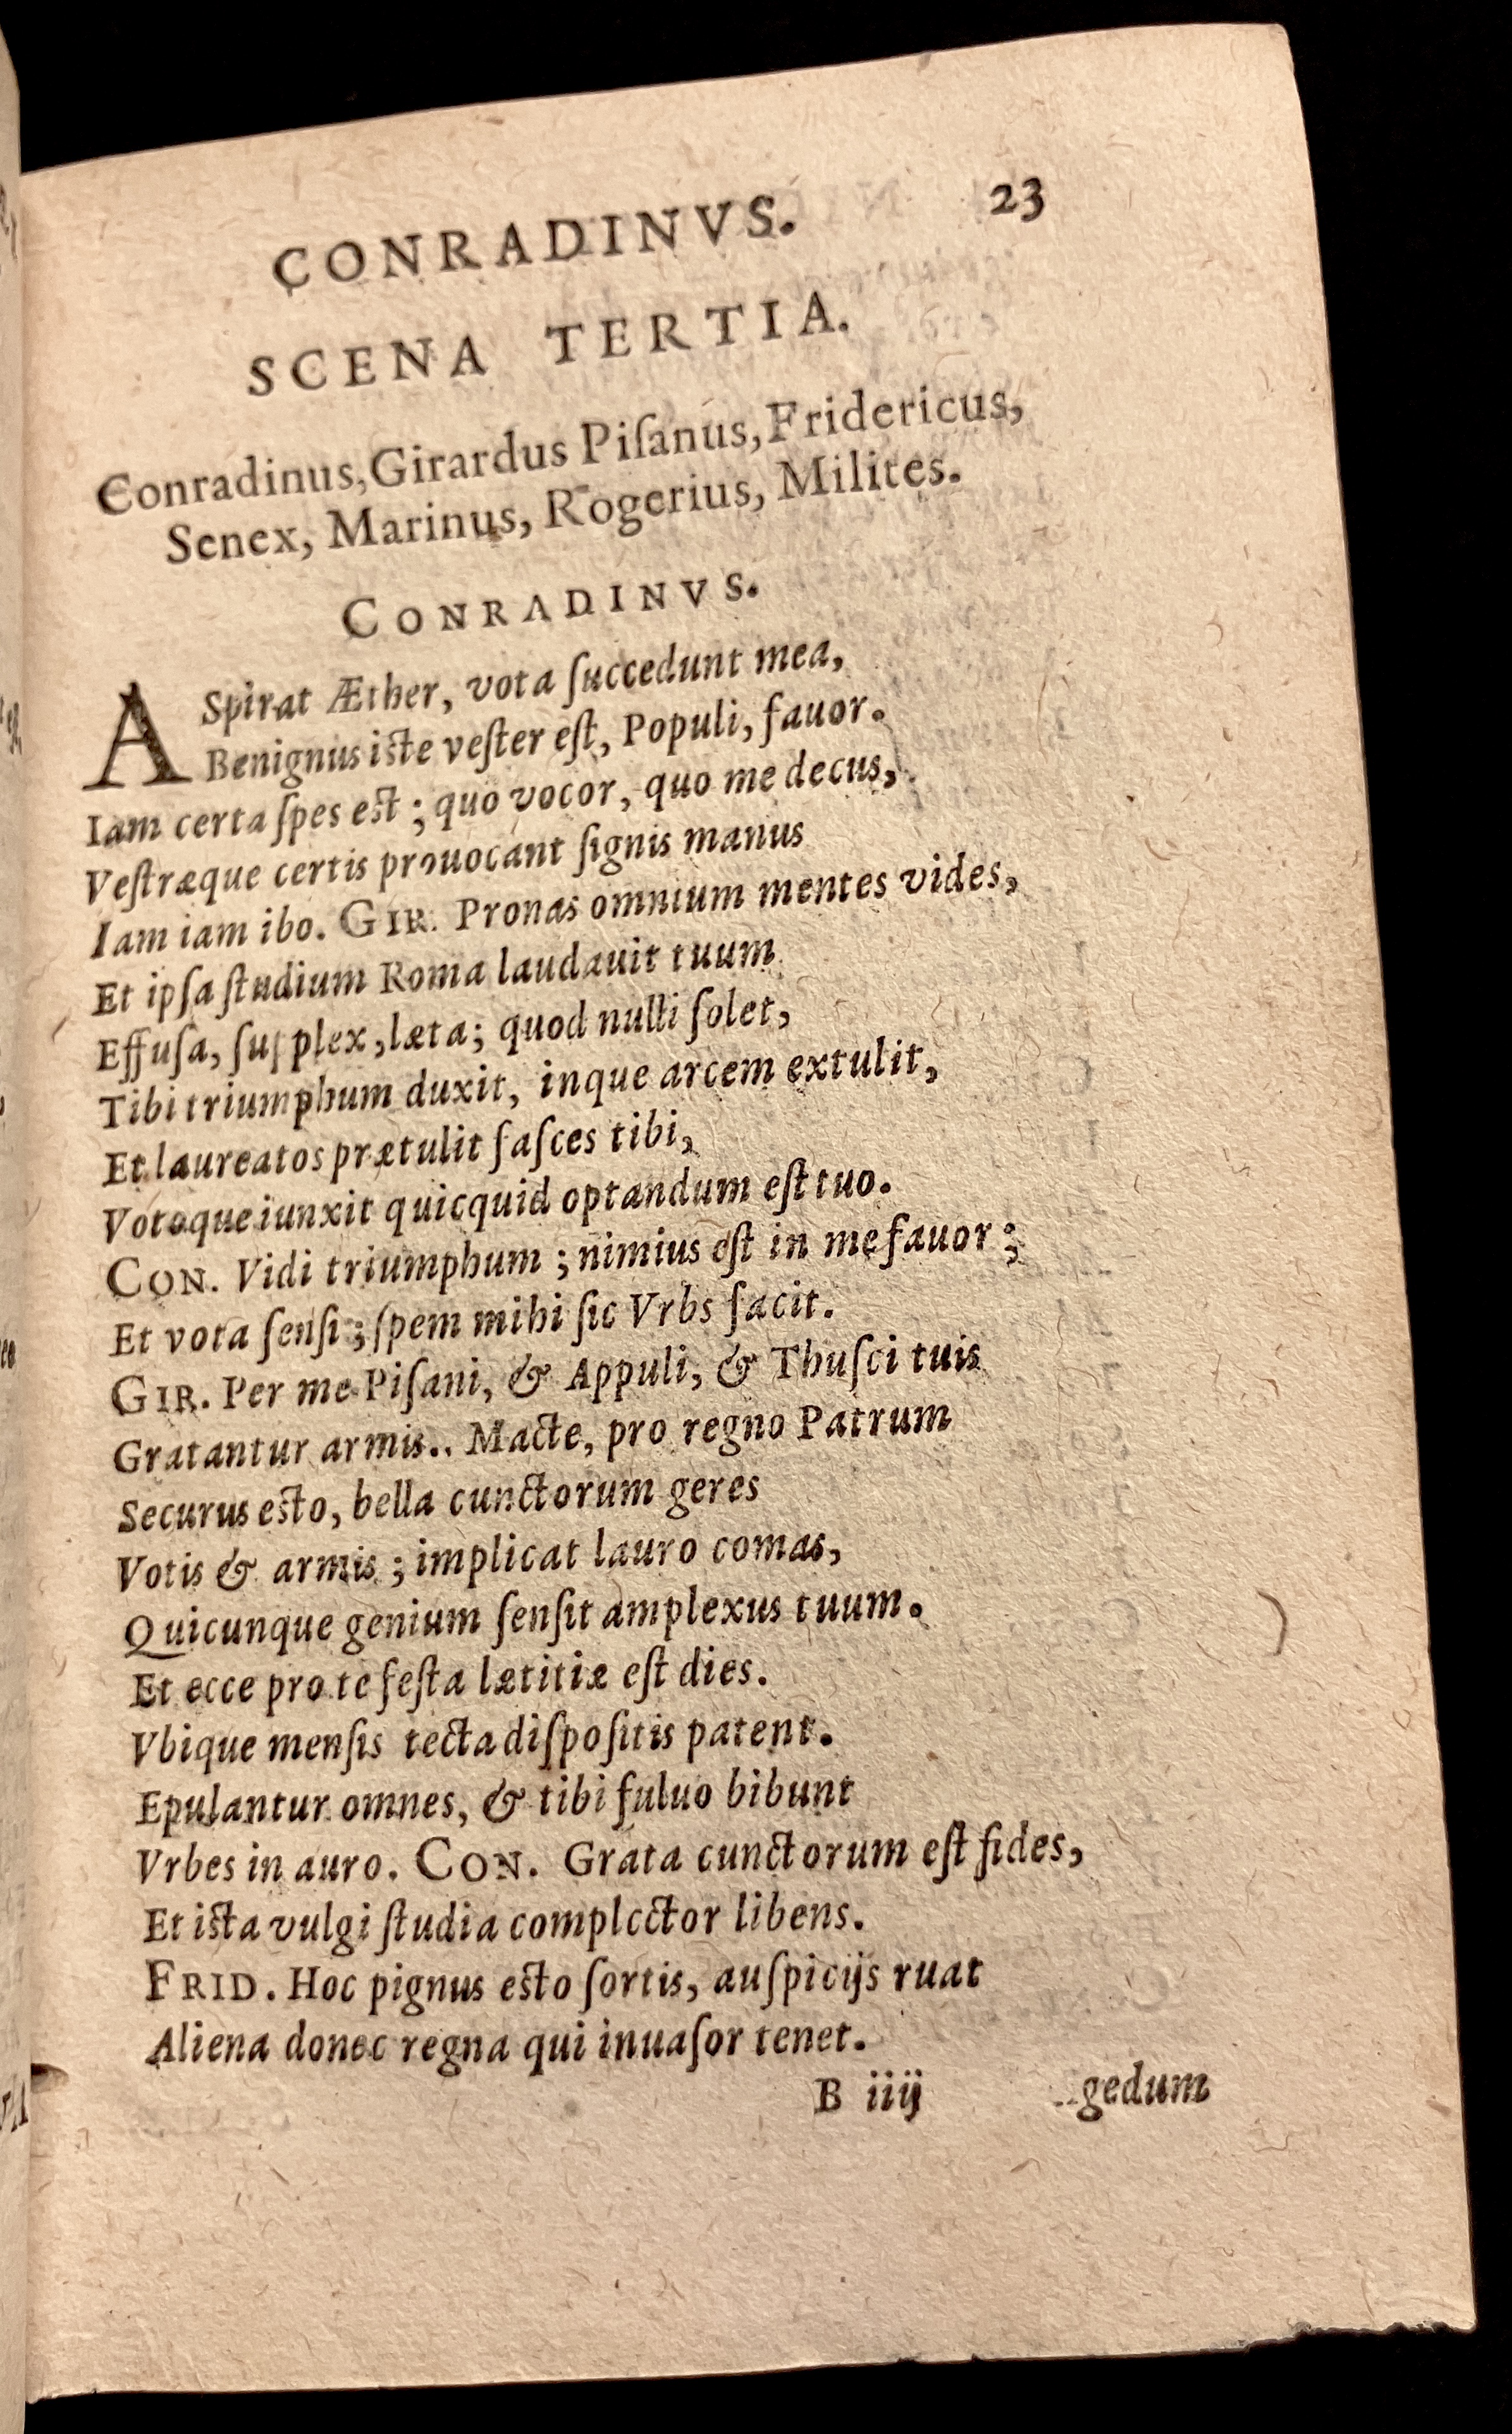 CONRADINVS. 23
SCENA TERTIA.
Conradinus, Girardus Piſanus, Fridericus,
Senex, Marinus, Rogerius, Milites.
CONRADINVS.
ASpirat Æther, vota ſuccedunt mea,
Benignus iste veſter eſt, Populi, fauor.
Iam certa ſpes est; quo vocor, quo me decus,
Veſtræque certis prouocant ſignis manus
Iam iam ibo. GIR. Pronas omnium mentes vides,
Et ipſa ſtudium Roma laudauit tuum
Effuſa, ſupplex, læta; quod nulli ſolet,
Tibi triumphum duxit, inque arcem extulit,
Et laureatos prætulit faſces tibi,
Votoque iunxit quicquid optandum eſt tuo.
CON. Vidi triumphum; nimius eſt in me fauor;
Et vota ſenſi; ſpem mihi ſic Vrbs facit.
GIR. Per me Piſani, & Appuli, & Thuſci tuis
Gratantur armis.. Macte, pro regno Patrum
Securus esto, bella cunctorum geres
Votis & armis; implicat lauro comas,
Quicunque genium ſenſit amplexus tuum.
Et ecce pro te feſta lætitiæ eſt dies.
Vbique menſis tecta diſpoſitis patent.
Epulantur omnes, & tibi fuluo bibunt
Vrbes in auro. CON. Grata cunctorum eſt fides,
Et ista vulgi ſtudia complector libens.
FRID. Hoc pignus esto ſortis, auſpicijs ruat
Aliena donec regna qui inuaſor tenet.
B iiij gedum